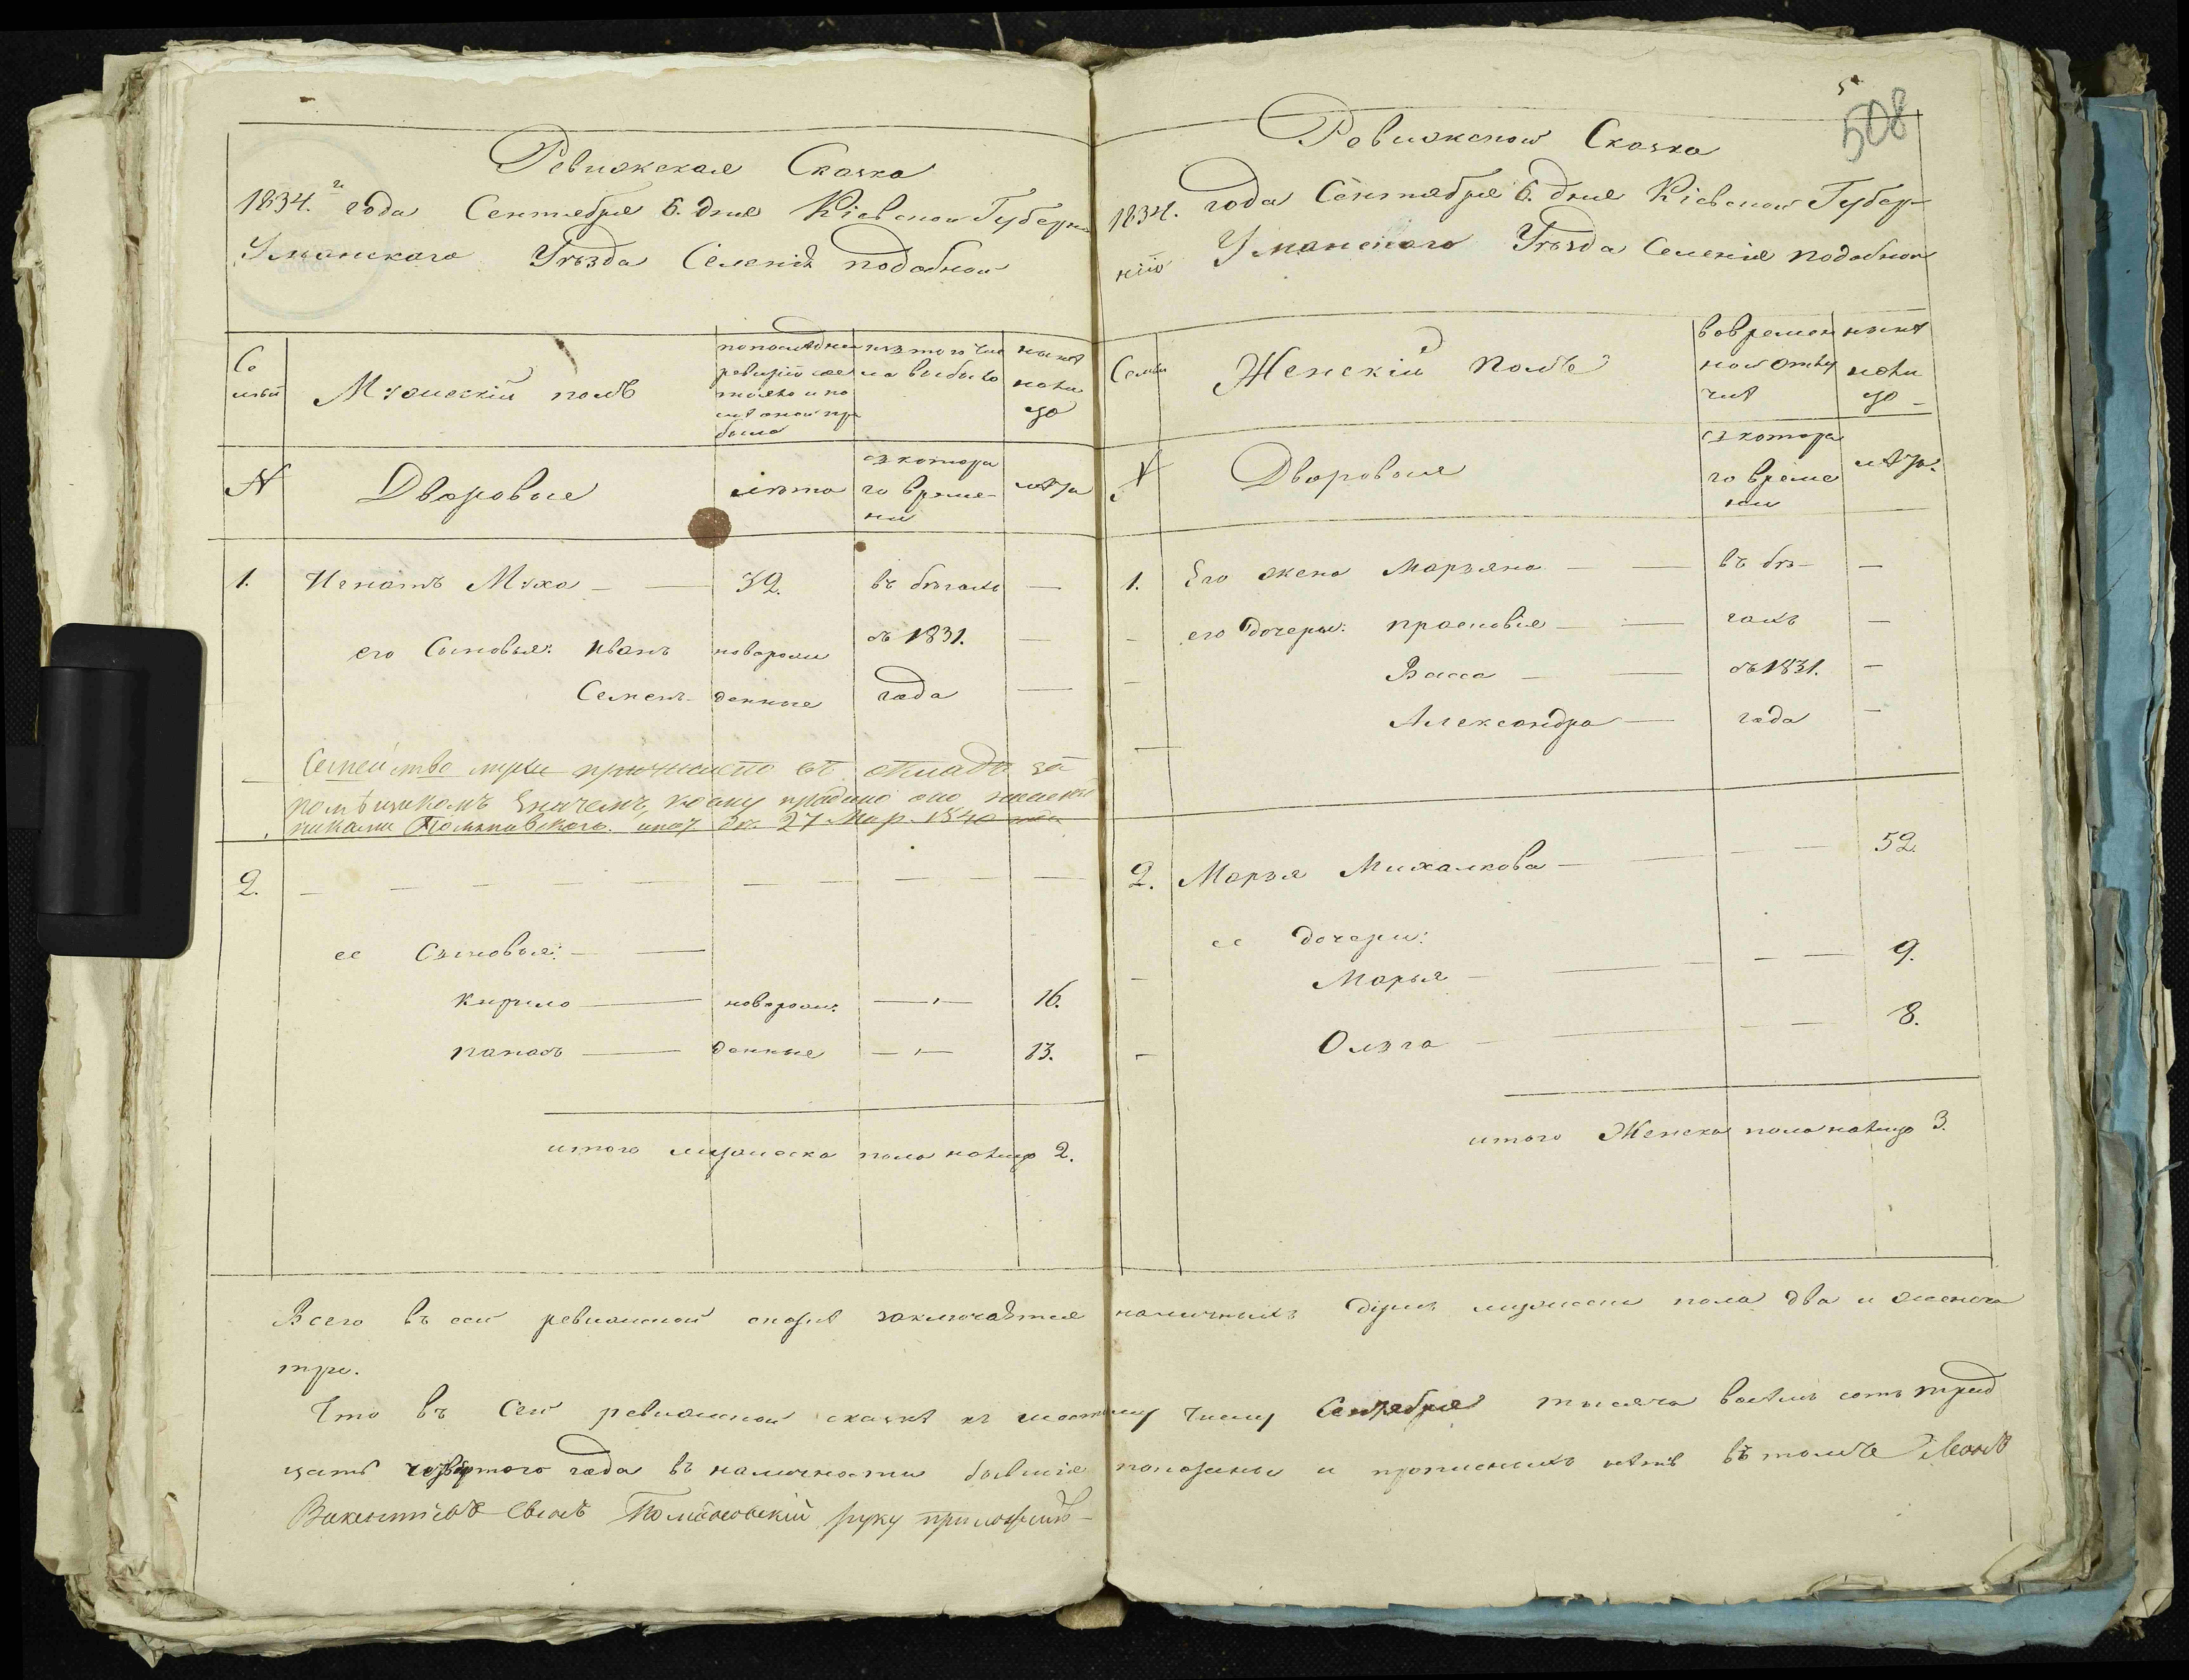 Ревижская Сказка
1834.го года Сентября 6. дня Кіевской Губерн
Уманского Уѣзда Селенія подобной
Се
мьи
Мужескій полъ
попоследней
ревизіи сос
тояло и по
слѣ оной при
было
изтого чис
ла выбыло
нынѣ
нали
цо
№
Дворовые
лѣта
съ котора
го време-
ни
лѣта
1.
Игнатъ Муха
32.
въ бѣгахъ
его Сыновья: Иванъ
новорож
съ 1831.
Семенъ
денные
года
Семейство мухи причислено въ окладъ за
помѣщикомъ коему продано оно
27 Мар. 1840 года
2.
ее Сыновья:
Кирило
новорож:
16.
панасъ
денные
13.
итого мужеска пола налицо 2.
5
508
Ревижской Сказка
1834. года Сентября 6. дня Кіевской Губер-
ніи Уманского Уѣзда Селенія подобной
Семьи
Женскій полъ
вовремен
ной отлу
чкѣ
нынѣ
нали
цо-
№
Дворовыя
съ котора
го време
ни
лѣта.
1.
Его жена Марьяна
въ бѣ-
его дочеры: прасковія
гахъ
Васса
съ 1831.
Александра
года
2.
Марья Михалкова
52.
ее дочери:
Марья
9.
Ольга
8.
итого Женска пола налицо 3.
Всего въ сей ревижской сказкѣ заключается наличныхъ душъ мужеска пола два и женска
три.
Что въ сей ревижской сказкѣ къ шестому числу Сентября тысяча восемь сотъ трид
цать четвертого года въ наличности бывшія показаны и прописныхъ нѣтъ въ томъ Леонъ
Викентіевъ сынъ руку приложилъ-